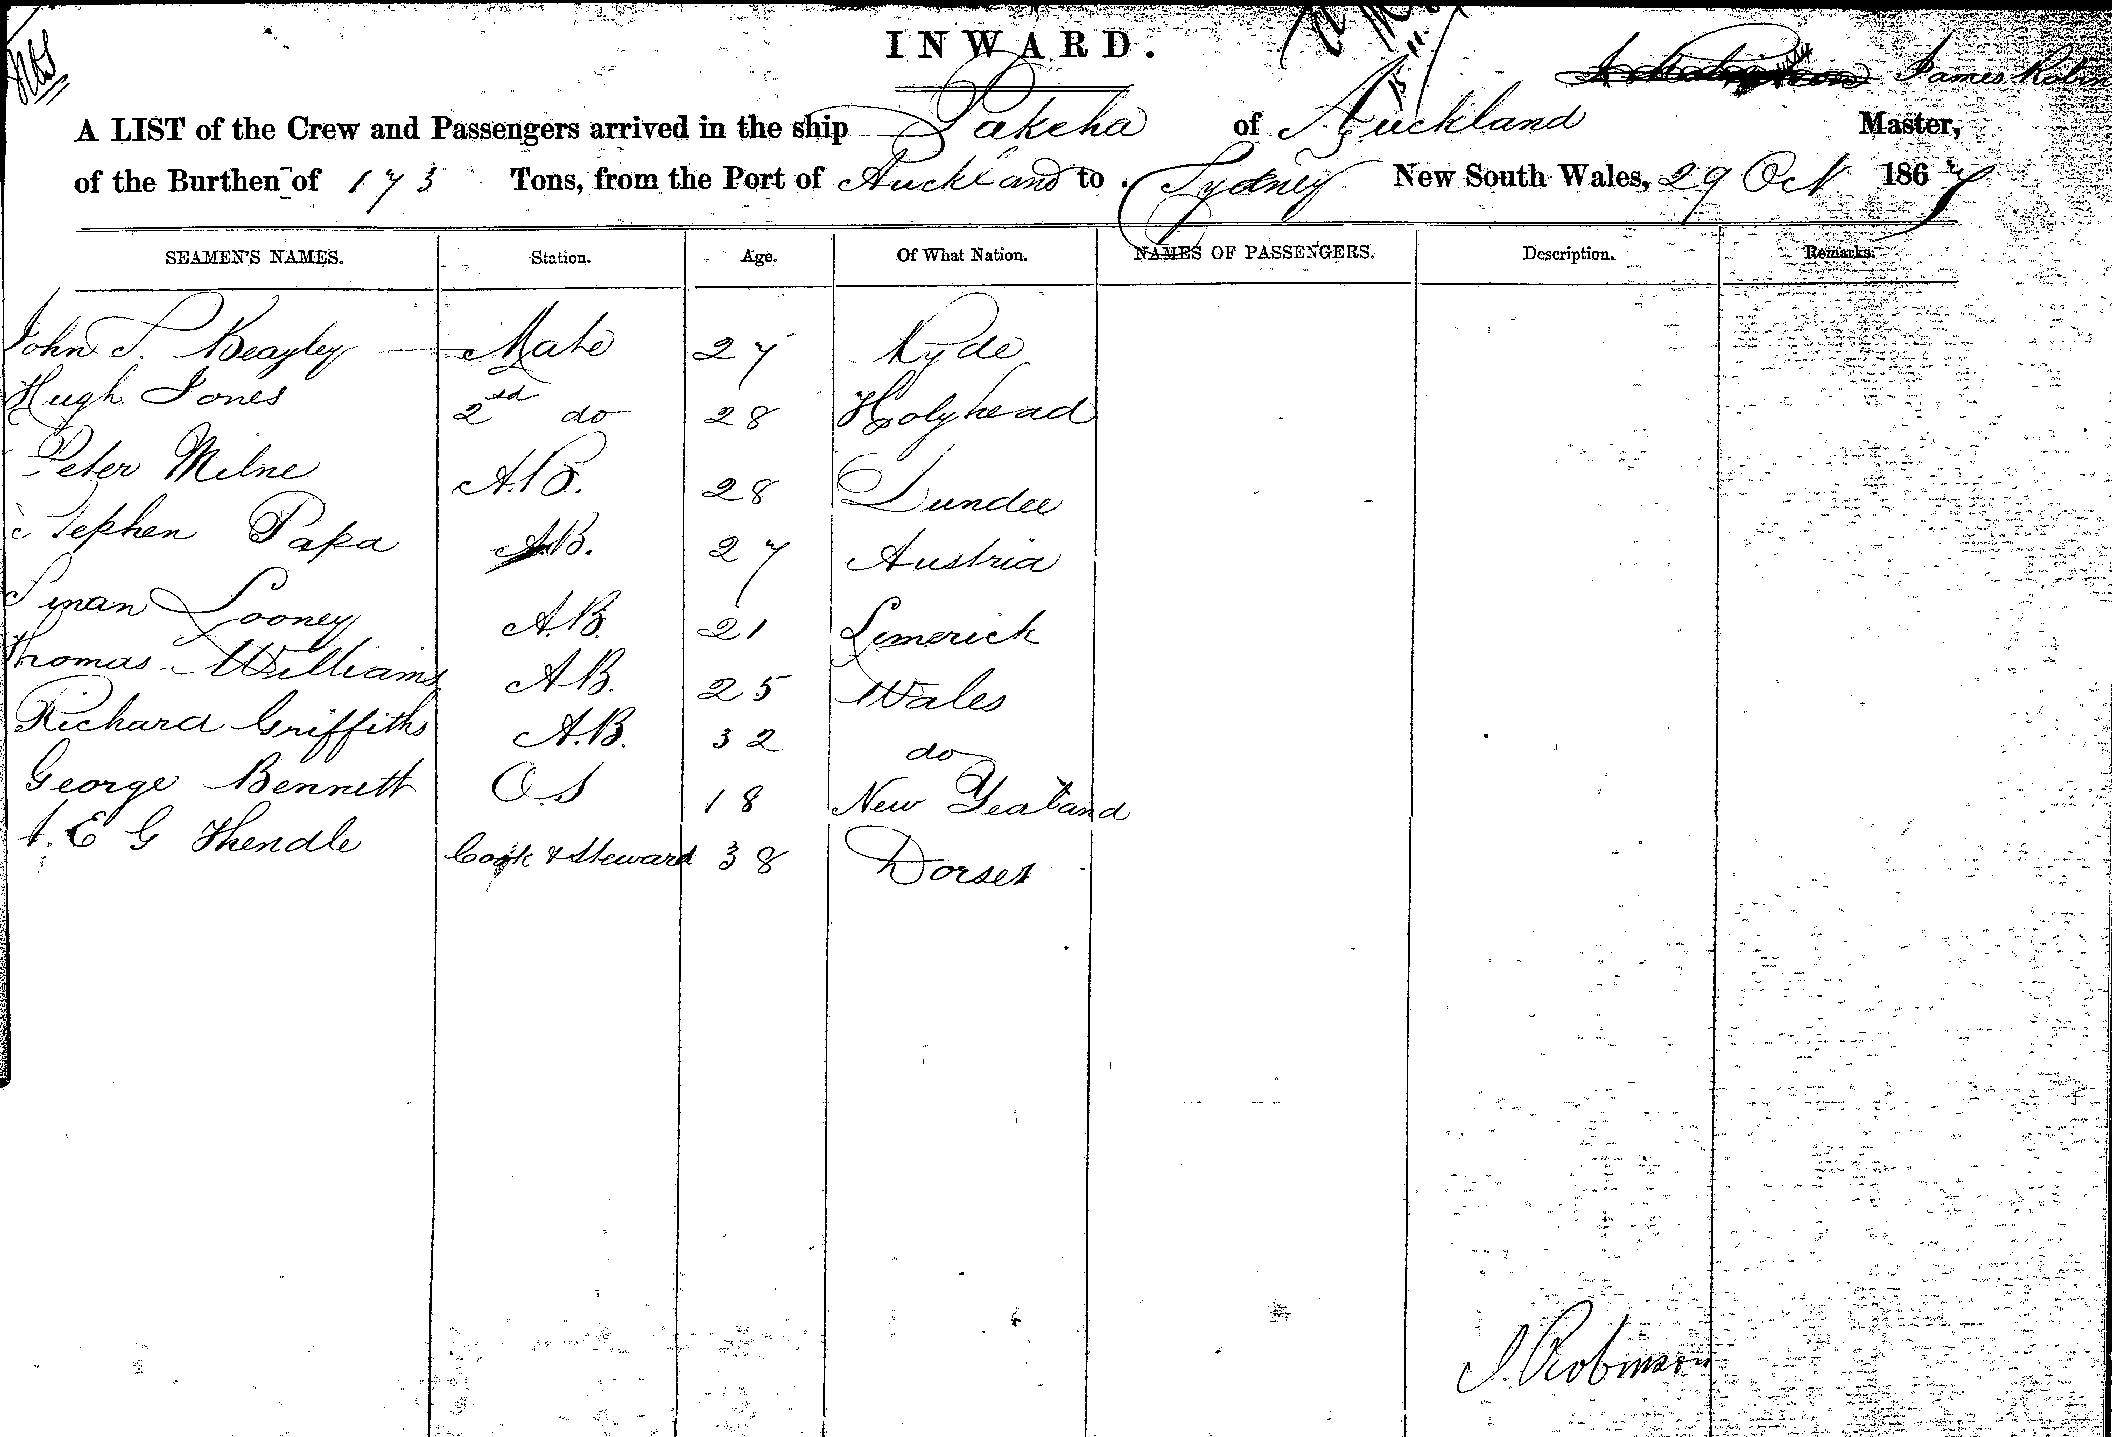 INWARD.
James Robin
A LIST of the Crew and Passengers arrived in the ship Pakeha of Auckland Master,
of the Burthen of 173 Tons, from the Port of Auckland to Sydney New South Wales, 29 Oct 1867
SEAMEN'S NAMES. Station. Age. Of What Nation. NAMES OF PASSENGERS. Description. Remarks.
John S. Beagley Mate 27 Ryde
Hugh Jones 2nd do 28 Holyhead
Peter Milne A.B. 28 Dundee
Stephen Papa A.B. 27 Austria
Looney A.B. 21 Limerick
Thomas Williams A.B. 25 Wales
Richard Griffiths A.B. 32 do
George Bennett O.S 18 New Zealand
E G Thendle Cook & Steward 38 Dorset
J. Robinson